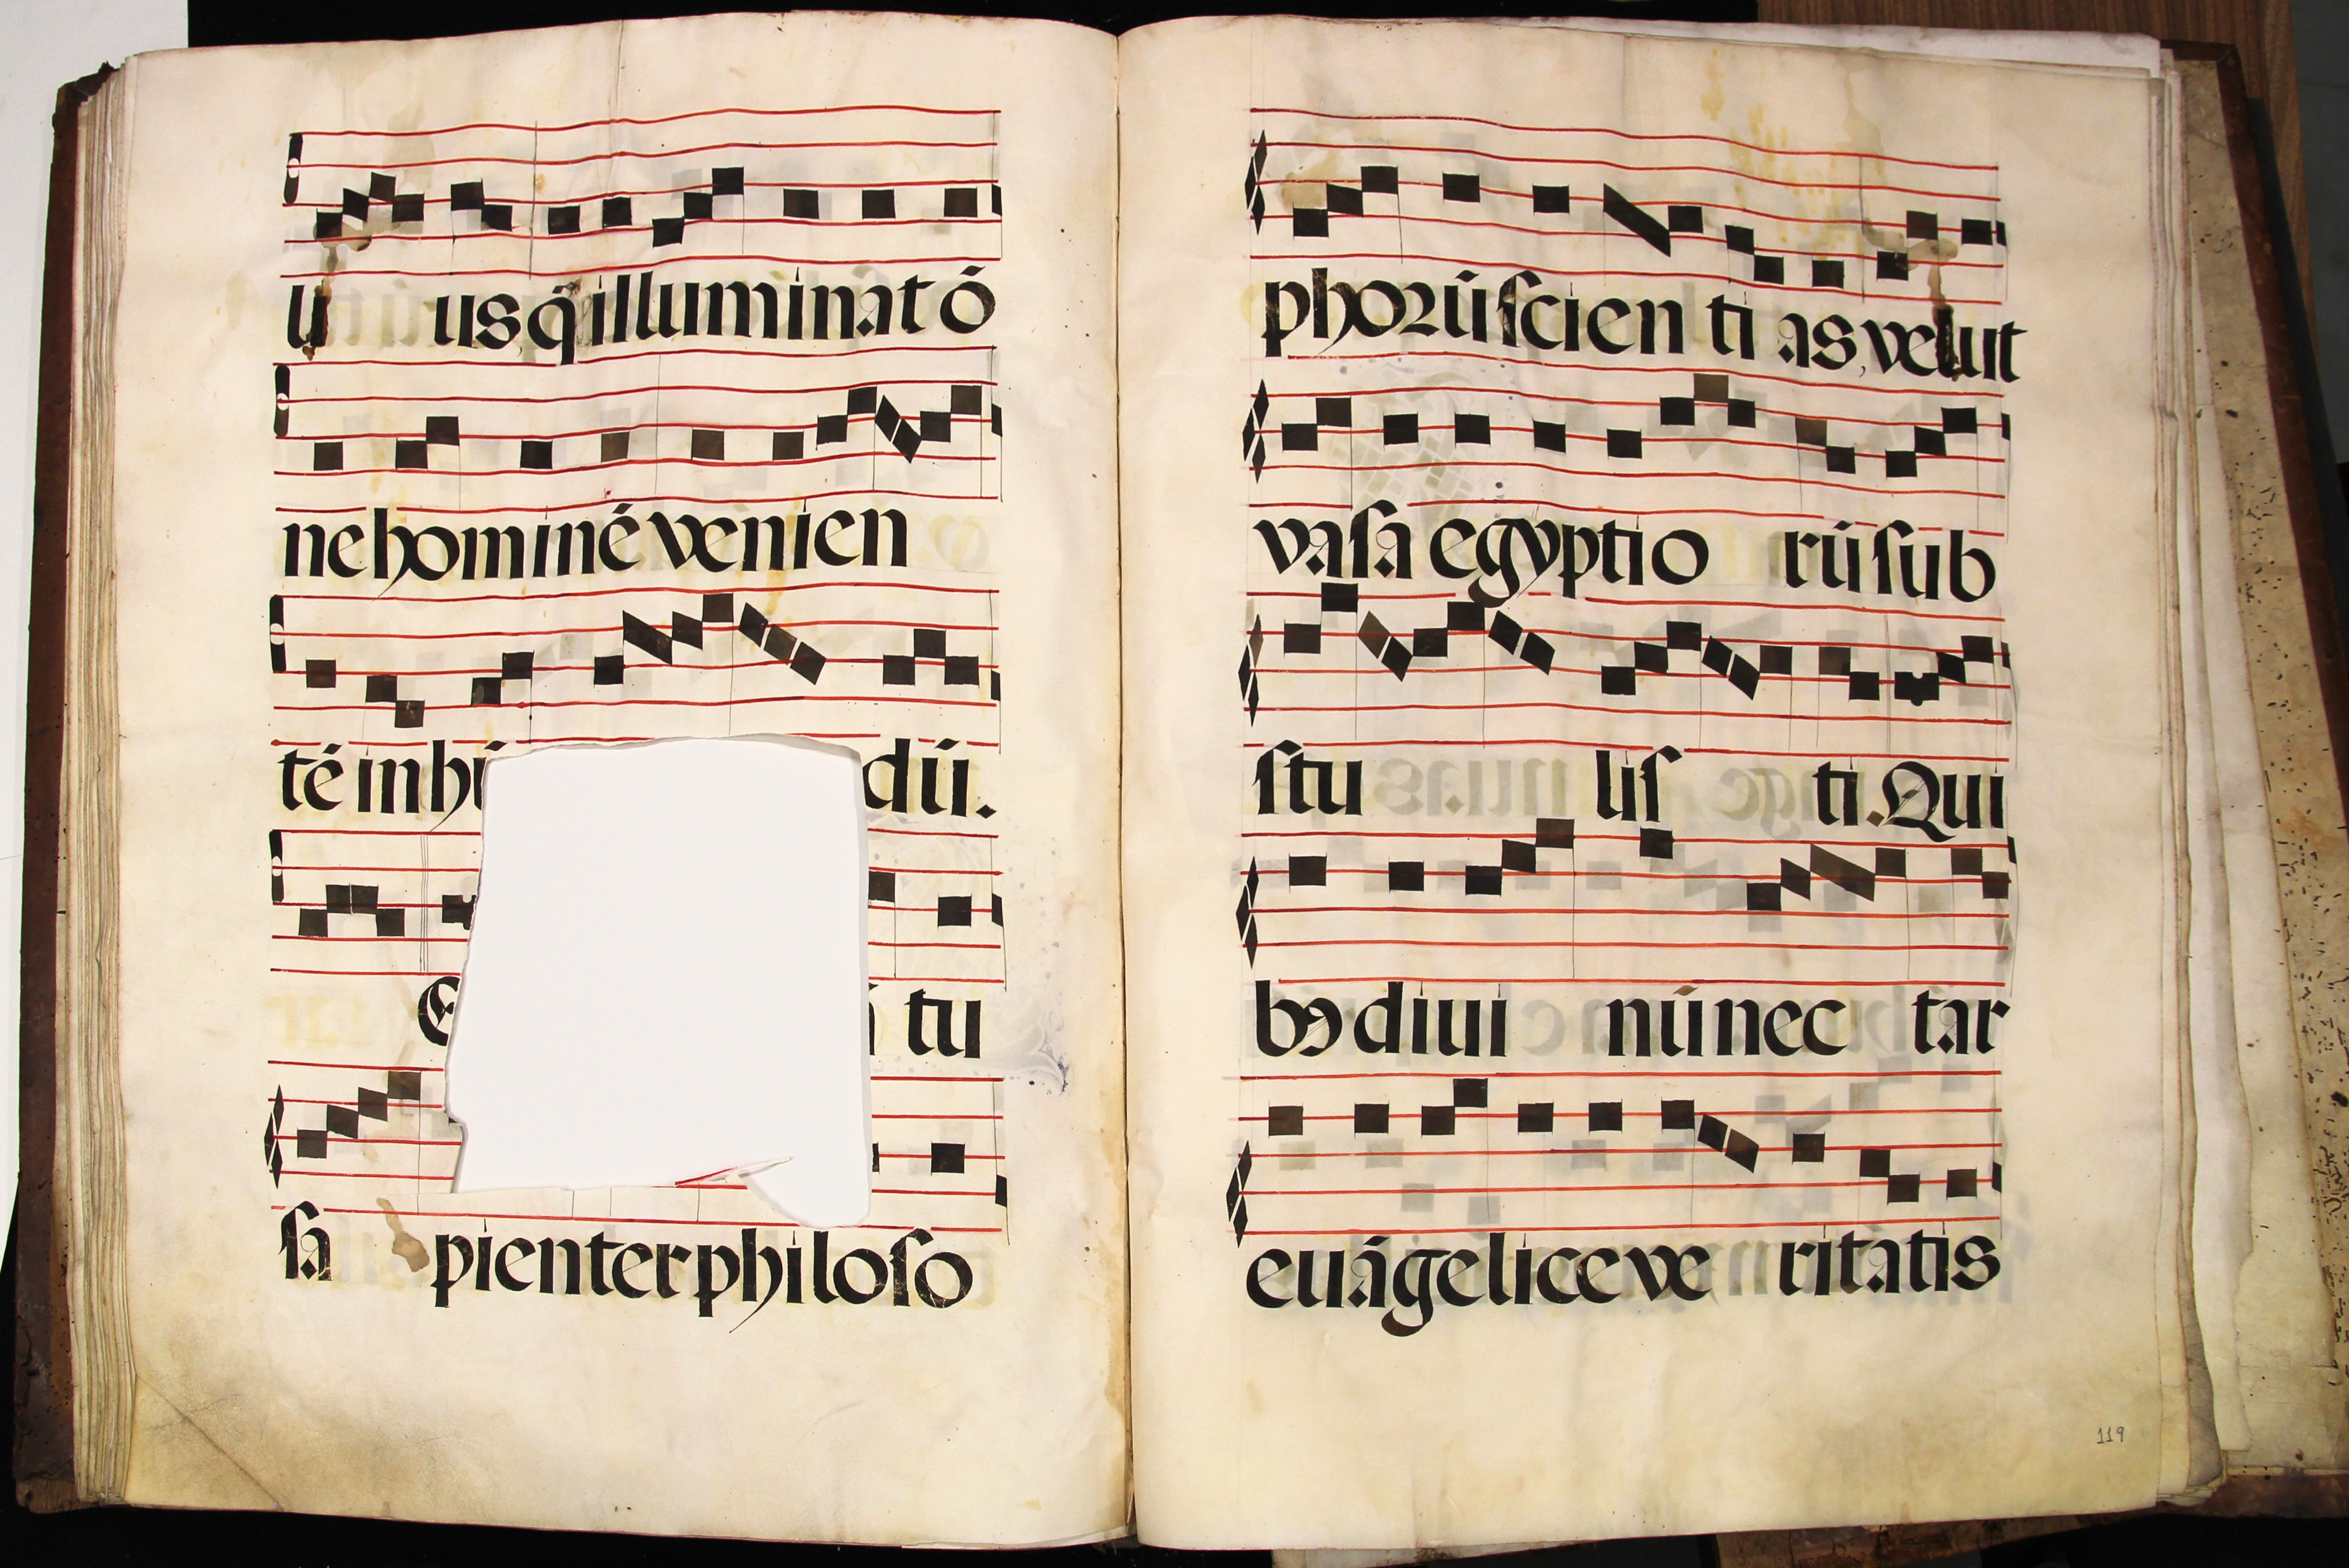 u us, q̃ illuminat ó
ne hominé venien
té in hu dú.
E ã tu
ſa pienter philoſo
phorũ ſcien ti as, velut
vaſa egyptio rũ ſub
ſtu liſ ti. Qui
bꝰ diui nú nec tar
euãgelice ve ritatis
119